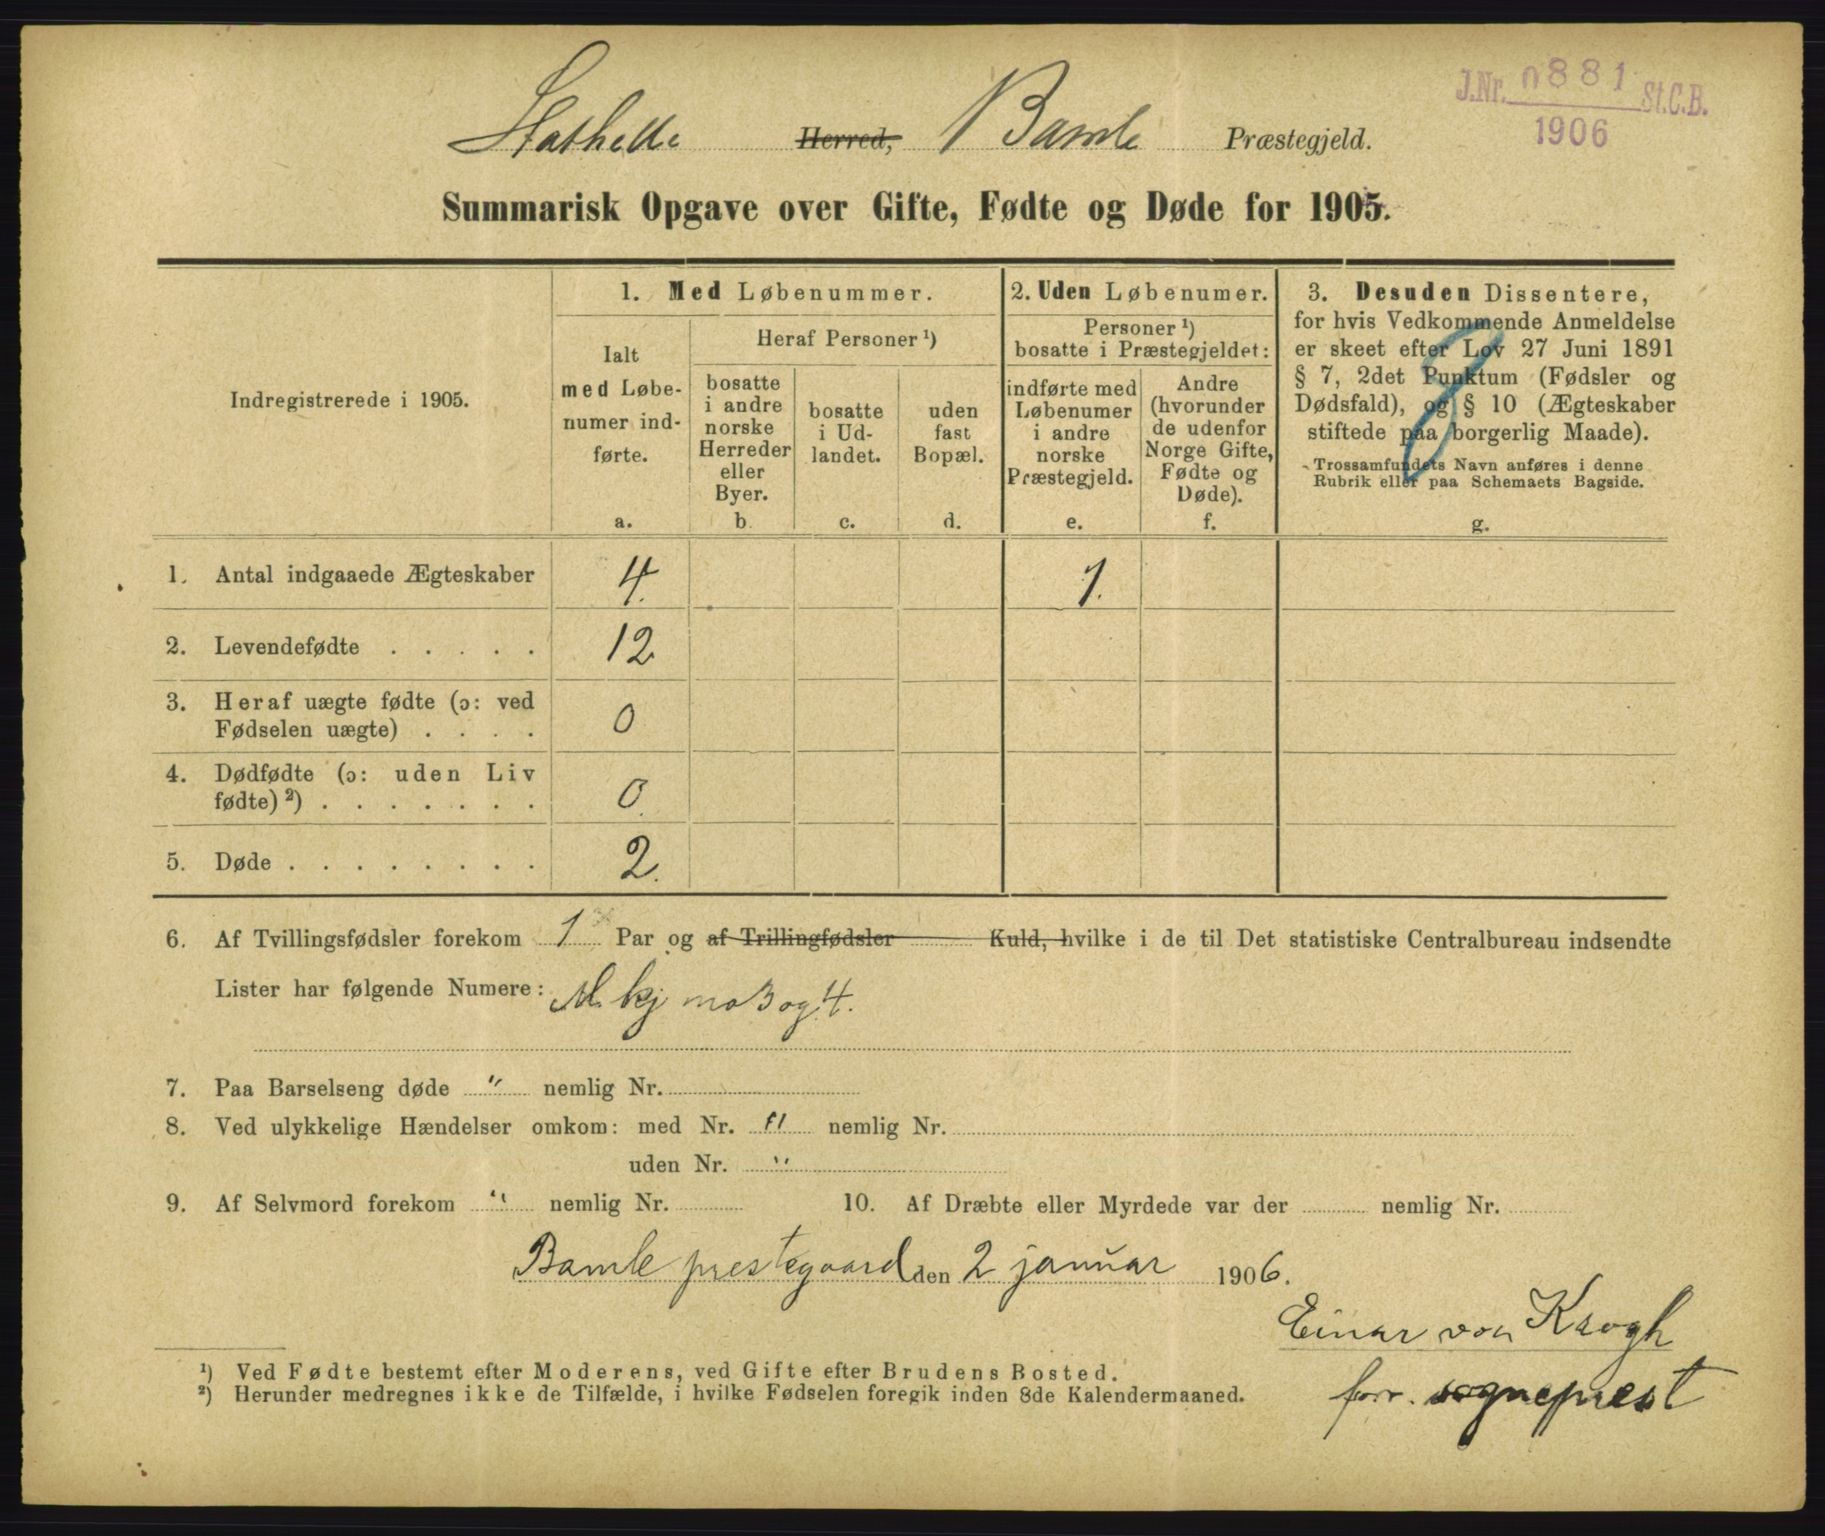 J.Nr. 0881 St.C.B.
1906
Stathelle Herred, Bamle Præstegjeld.
Summarisk Opgave over Gifte, Fødte og Døde for 1905.
Indregistrerede i 1905.
1. Med Løbenummer.
Ialt
med Løbe-
numer ind-
førte.
a.
Heraf Personer ¹)
bosatte
i andre
norske
Herreder
eller
Byer.
b.
bosatte
i Ud-
landet.
c.
uden
fast
Bopæl.
d.
2. Uden Løbenumer.
Personer ¹)
bosatte i Præstegjeldet:
indførte med
Løbenumer
i andre
norske
Præstegjeld.
e.
Andre
(hvorunder
de udenfor
Norge Gifte,
Fødte og
Døde).
f.
3. Desuden Dissentere,
for hvis Vedkommende Anmeldelse
er skeet efter Lov 27 Juni 1891
§ 7, 2det Punktum (Fødsler og
Dødsfald), og § 10 (Ægteskaber
stiftede paa borgerlig Maade).
Trossamfundets Navn anføres i denne
Rubrik eller paa Schemaets Bagside.
g.
1. Antal indgaaede Ægteskaber 4. 1.
2. Levendefødte . . . . . 12
3. Heraf uægte fødte (ɔ: ved
Fødselen uægte) . . . . 0
4. Dødfødte (ɔ: uden Liv
fødte) ²) . . . . . . . 0.
5. Døde . . . . . . . . 2.
6. Af Tvillingsfødsler forekom 1 Par og af Trillingfødsler Kuld, hvilke i de til Det statistiske Centralbureau indsendte
Lister har følgende Numere: M. kj no 3 og 4.
7. Paa Barselseng døde " nemlig Nr.
8. Ved ulykkelige Hændelser omkom: med Nr. " nemlig Nr.
uden Nr. "
9. Af Selvmord forekom " nemlig Nr. 10. Af Dræbte eller Myrdede var der nemlig Nr.
Bamle prestegaard den 2 januar 1906.
Einar von Krogh
forr. sogneprest
¹) Ved Fødte bestemt efter Moderens, ved Gifte efter Brudens Bosted.
²) Herunder medregnes ikke de Tilfælde, i hvilke Fødselen foregik inden 8de Kalendermaaned.